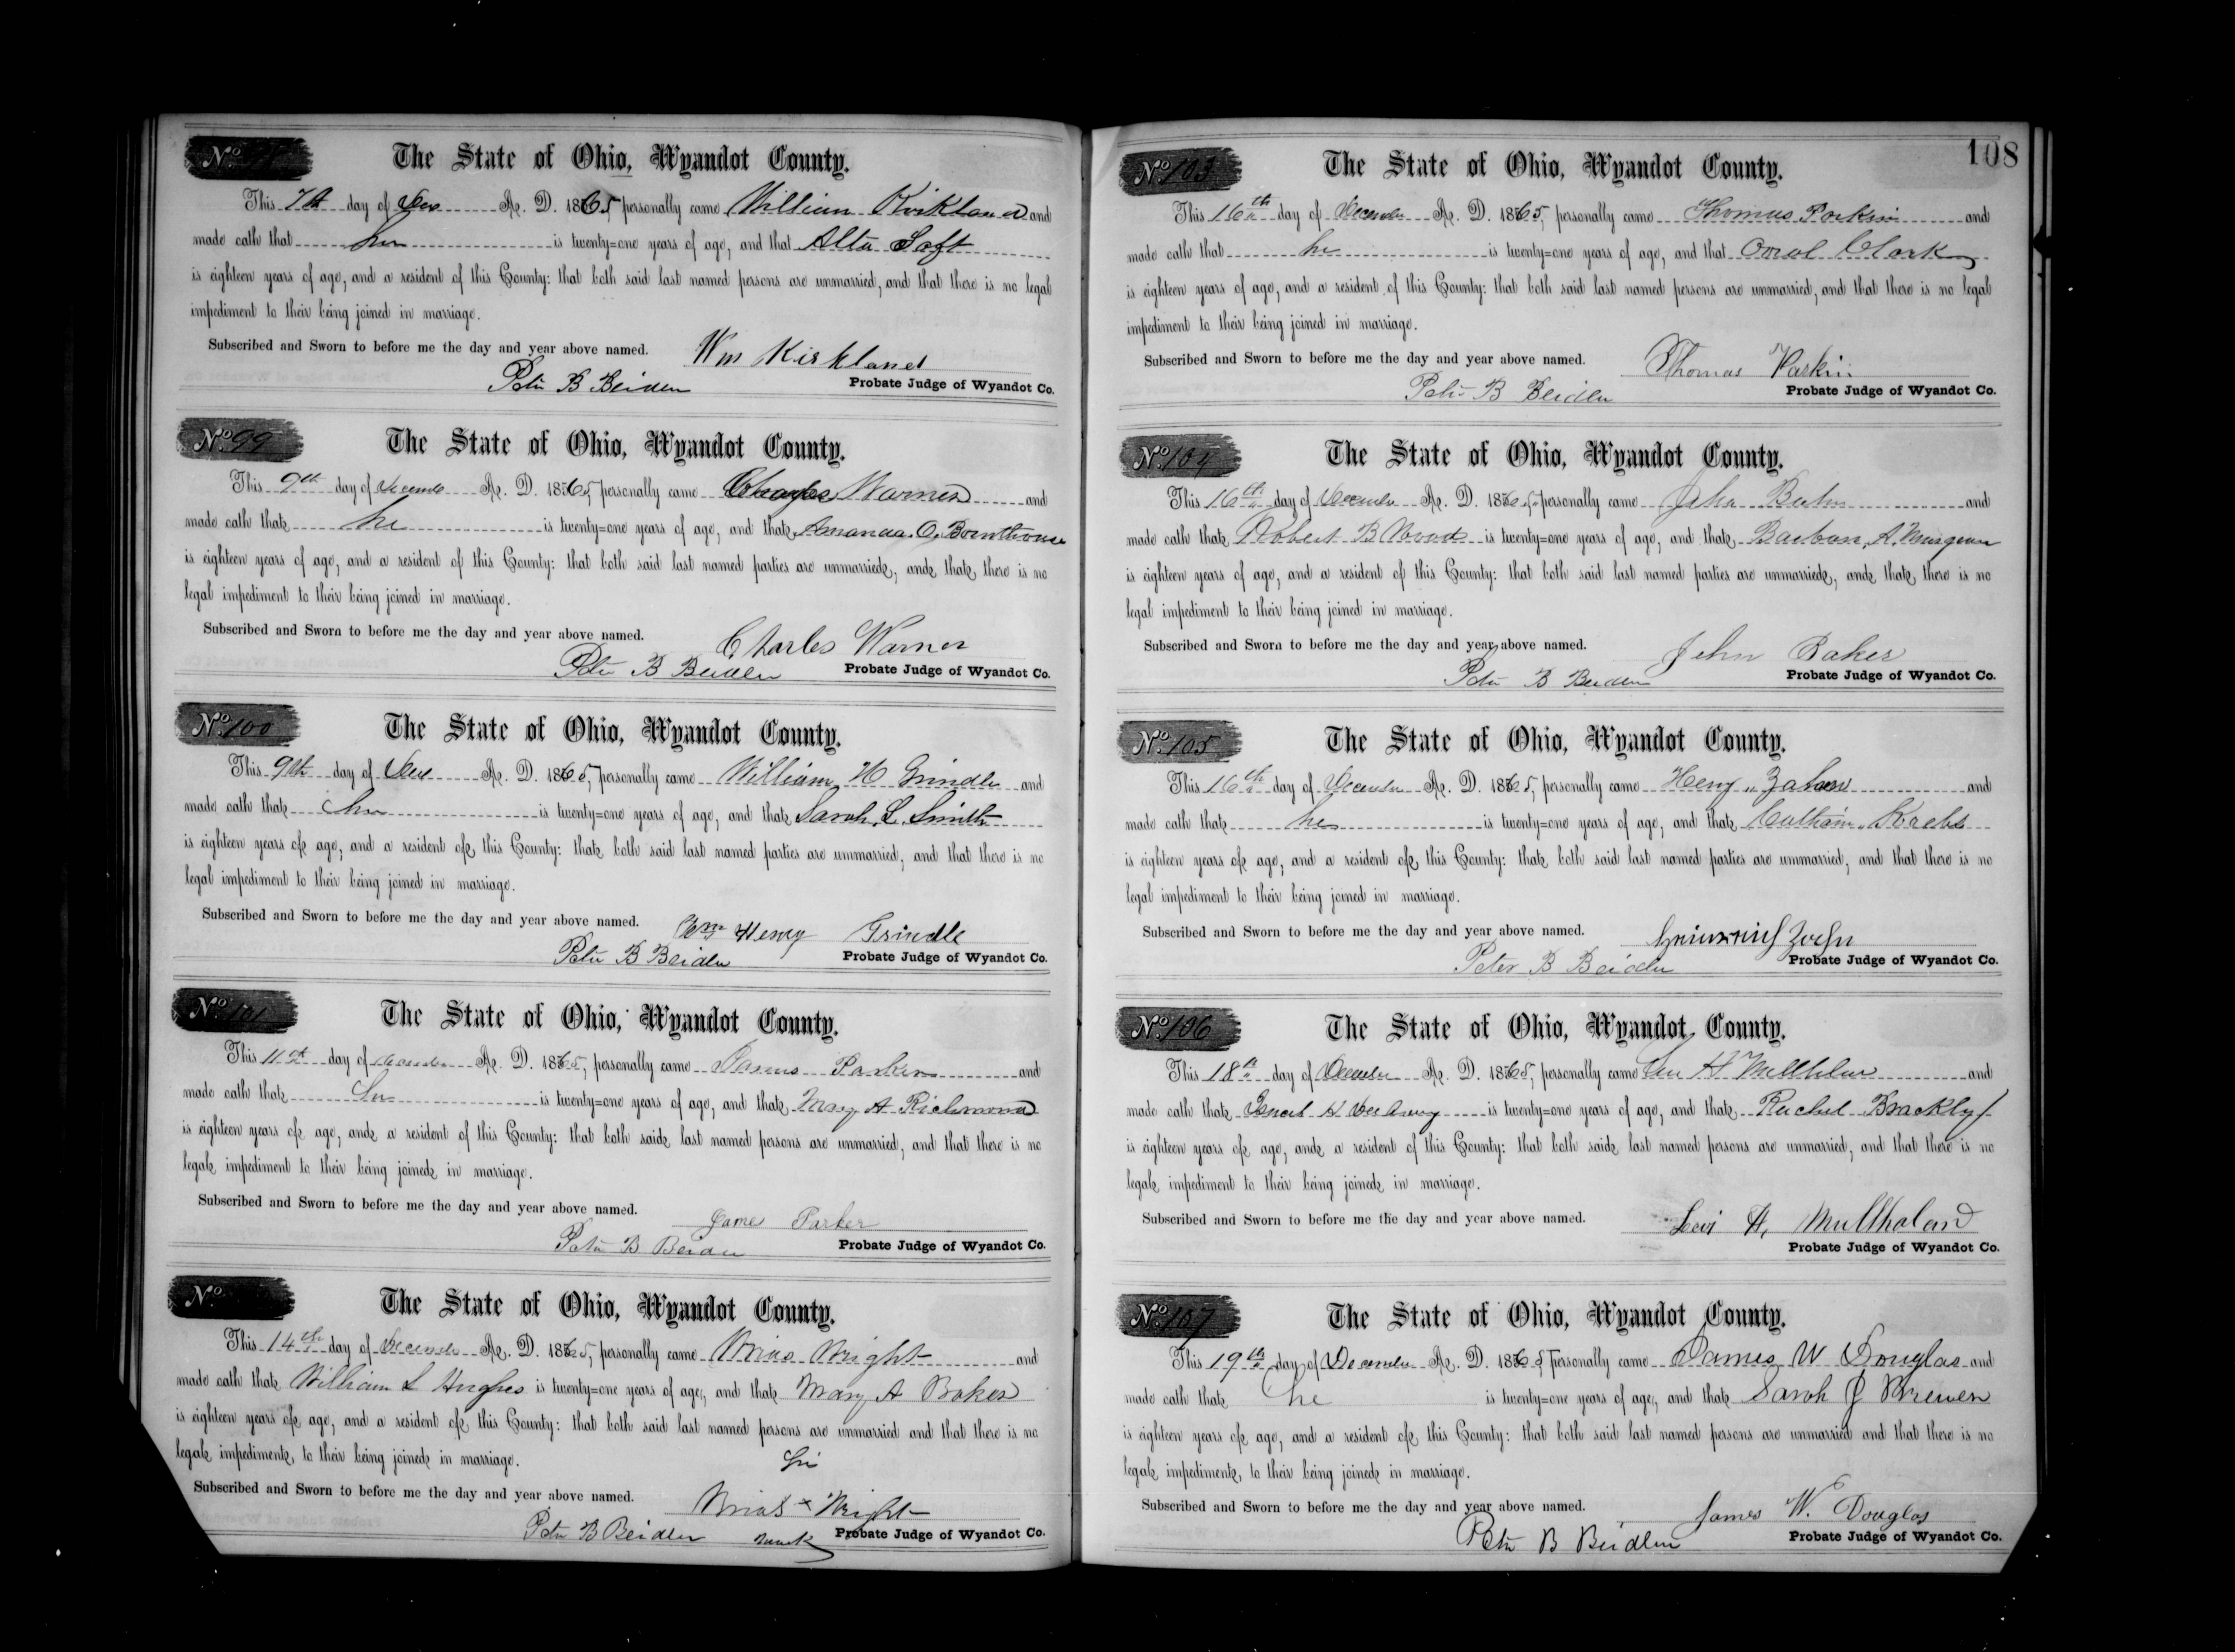 No
The State of Ohio, Wyandot County.
This 7th day of Dec A. D. 1865, personally came William Kirkland and
made oath that he is twenty=one years of age, and that Alta Saft
is eighteen years of age, and a resident of this County: that both said last named persons are unmarried, and that there is no legal
impediment to their being joined in marriage.
Subscribed and Sworn to before me the day and year above named. Wm Kirkland
Peter B Beidler Probate Judge of Wyandot Co.
No. 99
The State of Ohio, Wyandot County.
This 9th day of Decemb A. D. 1865, personally came Charles Warner and
made oath that he is twenty=one years of age, and that Amanda O.
is eighteen years of age, and a resident of this County: that both said last named parties are unmarried, and that there is no
legal impediment to their being joined in marriage.
Subscribed and Sworn to before me the day and year above named. Charles Warner
Peter B Beidler Probate Judge of Wyandot Co.
No. 100
The State of Ohio, Wyandot County.
This 9th day of Dec A. D. 1865, personally came William H Grindle and
made oath that he is twenty=one years of age, and that Sarah L. Smith
is eighteen years of age, and a resident of this County: that both said last named parties are unmarried, and that there is no
legal impediment to their being joined in marriage.
Subscribed and Sworn to before me the day and year above named. Wm Henry Grindle
Peter B Beidler Probate Judge of Wyandot Co.
No. 101
The State of Ohio, Wyandot County.
This 11th day of December A. D. 1865, personally came James Parker and
made oath that he is twenty=one years of age, and that Mary A Richmond
is eighteen years of age, and a resident of this County: that both said last named persons are unmarried, and that there is no
legal impediment to their being joined in marriage.
Subscribed and Sworn to before me the day and year above named. Jame Parker
Peter B Beidler Probate Judge of Wyandot Co.
No.
The State of Ohio, Wyandot County.
This 14th day of December A. D. 1865, personally came Urias Wright and
made oath that William L Hughes is twenty=one years of age, and that Mary A Baker
is eighteen years of age, and a resident of this County: that both said last named persons are unmarried and that there is no
legal impediment, to their being joined in marriage.
his
Subscribed and Sworn to before me the day and year above named. Urias x Wright
Peter B Beidler mark Probate Judge of Wyandot Co.
108
No. 103
The State of Ohio, Wyandot County.
This 16th day of December A. D. 1865, personally came Thomas Parkin and
made oath that he is twenty=one years of age, and that Orral Clark
is eighteen years of age, and a resident of this County: that both said last named persons are unmarried, and that there is no legal
impediment to their being joined in marriage.
Subscribed and Sworn to before me the day and year above named. Thomas Parkin
Peter B Beidler Probate Judge of Wyandot Co.
No. 104
The State of Ohio, Wyandot County.
This 16th day of December A. D. 1865, personally came John Baker and
made oath that Robert B Woods is twenty=one years of age, and that A.
is eighteen years of age, and a resident of this County: that both said last named parties are unmarried, and that there is no
legal impediment to their being joined in marriage.
Subscribed and Sworn to before me the day and year above named. John Baker
Peter B Beidler Probate Judge of Wyandot Co.
No. 105
The State of Ohio, Wyandot County.
This 16th day of December A. D. 1865, personally came Henry Zahn and
made oath that he is twenty=one years of age, and that Krebs
is eighteen years of age, and a resident of this County: that both said last named parties are unmarried, and that there is no
legal impediment to their being joined in marriage.
Subscribed and Sworn to before me the day and year above named. Heinrich Zahn
Peter B Beidler Probate Judge of Wyandot Co.
No. 106
The State of Ohio, Wyandot County.
This 18th day of December A. D. 1865, personally came Levi H and
made oath that is twenty=one years of age, and that Rachel Brackly
is eighteen years of age, and a resident of this County: that both said last named persons are unmarried, and that there is no
legal impediment to their being joined in marriage.
Subscribed and Sworn to before me the day and year above named. Levi H, Mullholand
Probate Judge of Wyandot Co.
No. 107
The State of Ohio, Wyandot County.
This 19th day of December A. D. 1865, personally came James W Douglas and
made oath that he is twenty=one years of age, and that Sarah J Brewer
is eighteen years of age, and a resident of this County: that both said last named persons are unmarried and that there is no
legal impediment, to their being joined in marriage.
Subscribed and Sworn to before me the day and year above named. James W. Douglas
Peter B Beidler Probate Judge of Wyandot Co.